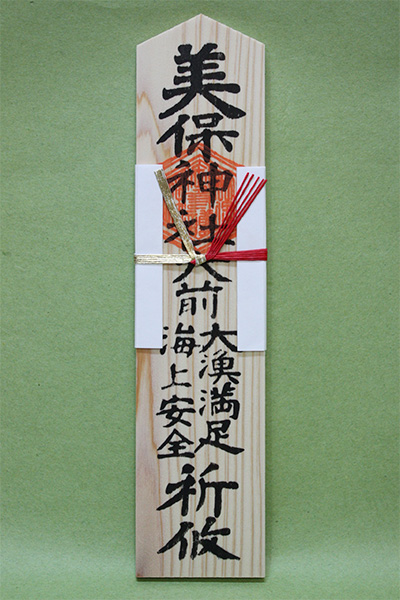 美保神社大前
大漁満足
海上安全
祈攸